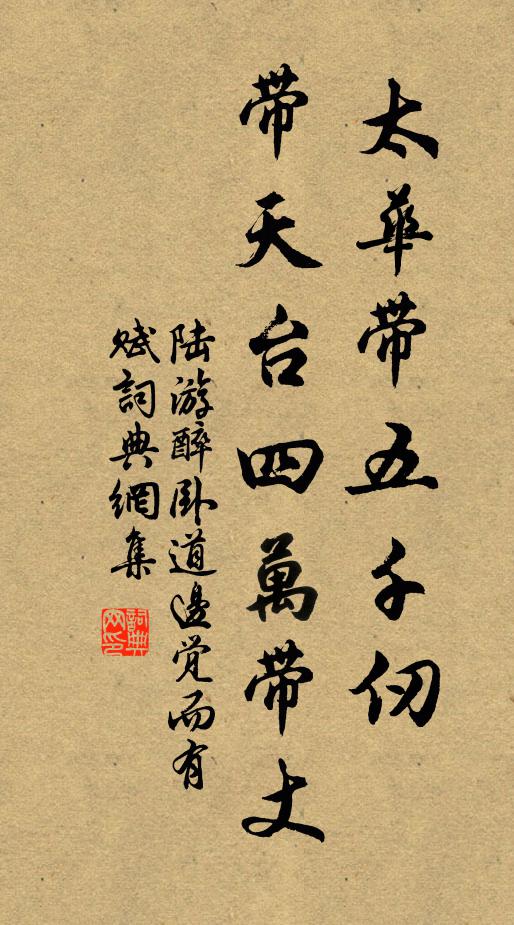 太華帶五千仞
帶天台四萬帶丈
陆游醉卧道邊觉而有
赋詞典網集
詞典网印